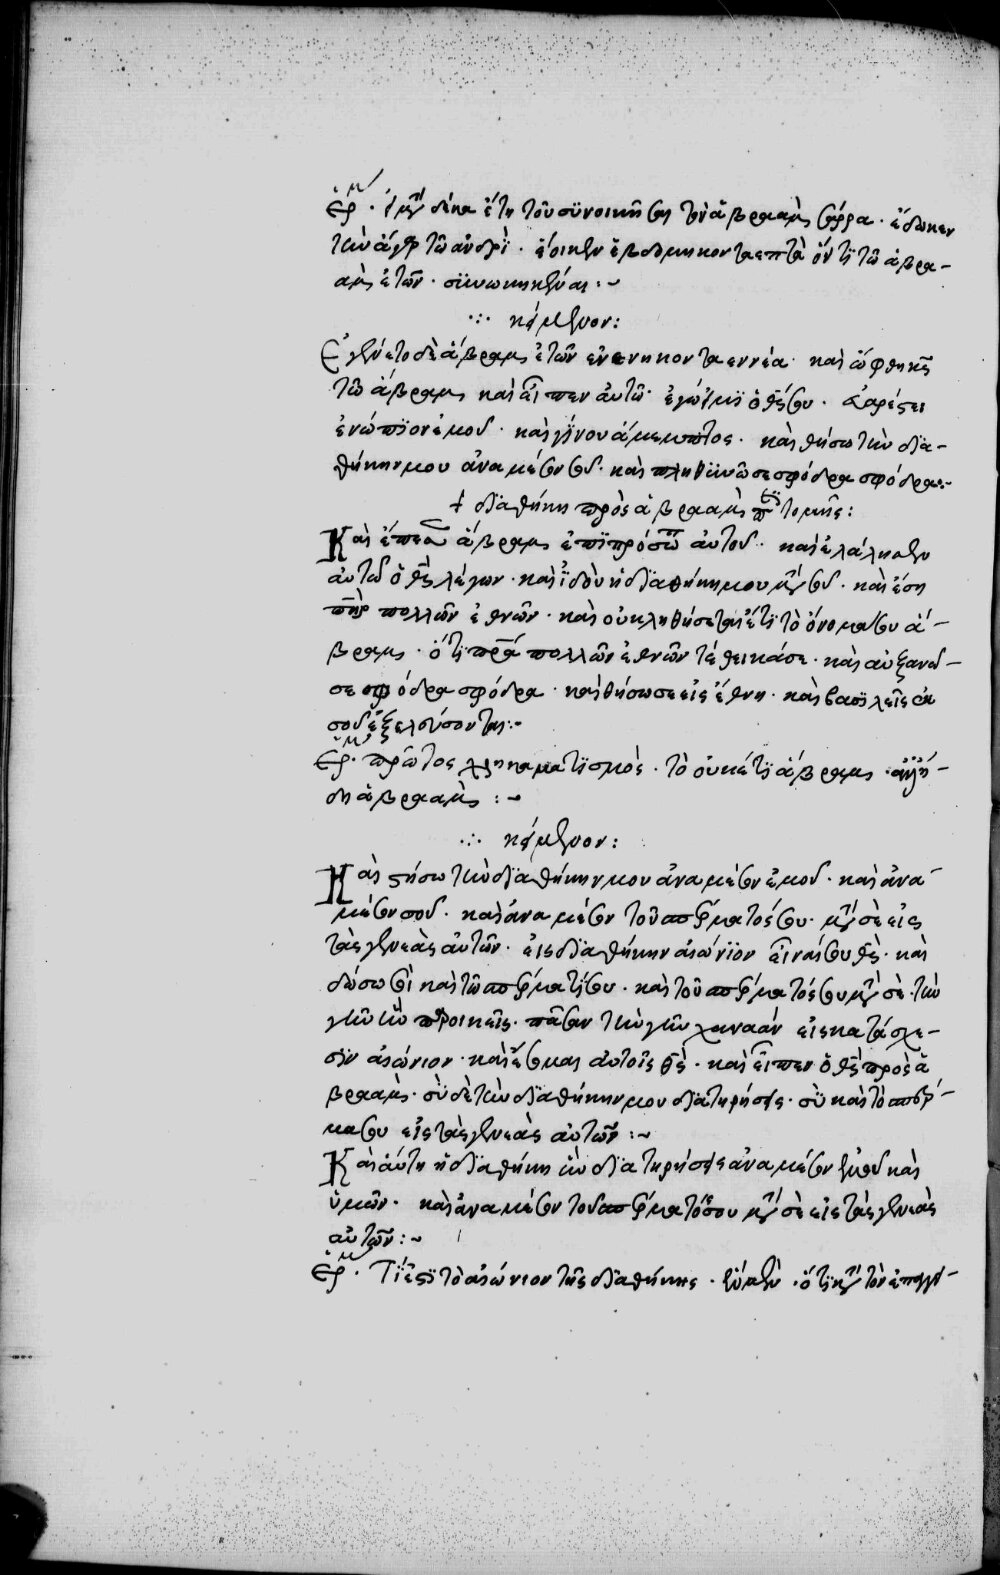 ἑρμ · δέκα ἔτη τοῦ συνοικῆσαι τῶ ἀβραὰμ σάρρα · ἔδωκεν
τὴν ἄγαρ τῶ ἀνδρὶ · ἔοικεν ἑβδομηκονταεπτὰ ὄντι τῶ ἀβρα-
ὰμ ἐτῶν · συνωκηκέναι :~
∴ κείμενον :
Ἐγένετο δὲ ἄβραμ ἐτῶν ἐνενηκονταεννέα · καὶ ὤφθη κς
τῶ ἄβραμ καὶ εἶπεν αὐτῶ · ἐγώ εἰμι ὁ θς σου · εὐαρέστει
ἐνώπιον ἐμοῦ · καὶ γίνου ἄμεμπτος · καὶ θήσω τὴν δια-
θήκην μου ἀναμέσον σοῦ · καὶ πληθυνῶ σε σφόδρα σφόδρα :~
+ διαθήκη πρὸς ἀβραὰμ περιτομῆς :
Καὶ ἔπεσεν ἄβραμ ἐπὶ πρόσωπον αὐτοῦ · καὶ ἐλάλησεν
αὐτῶ ὁ θς λέγων · καὶ ἰδοὺ ἡ διαθήκη μου μετὰ σοῦ · καὶ ἔση
πηρ πολλῶν ἐθνῶν · καὶ οὐ κληθήσεται ἔτι τὸ ὄνομά σου ἄ-
βραμ · ὅτι πρα πολλῶν ἐθνῶν τέθεικά σε · καὶ αὐξανῶ
σε σφόδρα σφόδρα · καὶ θήσω σε εἰς ἔθνη · καὶ βασιλεῖς ἐκ
σοῦ ἐξελεύσονται :~
ἑρμ · πρῶτος χρηματισμὸς · τὸ οὐκέτι ἄβραμ · ἀλλ' ἤ-
δη ἀβραὰμ :~
∴ κείμενον :
Καὶ στήσω τὴν διαθήκην μου ἀναμέσον ἐμοῦ · καὶ ἀνα-
μέσον σοῦ · καὶ ἀναμέσον τοῦ σπέρματός σου · μετὰ σὲ εἰς
τὰς γενεὰς αὐτῶν · εἰς διαθήκην αἰώνιον εἶναί σου θς · καὶ
δώσω σοὶ καὶ τῶ σπέρματί σου · καὶ τοῦ σπέρματός σου μετὰ σὲ · τὴν
γῆν ἣν παροικεῖς · πᾶσαν τὴν γῆν χαναάν εἰς κατάσχε-
σιν αἰώνιον · καὶ ἔσομαι αὐτοῖς θς · καὶ εἶπεν ὁ θς πρὸς ἀ-
βραὰμ · σὺ δὲ τὴν διαθήκην μου διατηρήσεις · σὺ καὶ τὸ σπέρ-
μα σου εἰς τὰς γενεὰς αὐτῶν :~
Καὶ αὕτη ἡ διαθήκη ἣν διατηρήσεις ἀναμέσον ἐμοῦ καὶ
ὑμῶν · καὶ ἀναμέσον τοῦ σπέρματός σου μετὰ σὲ εἰς τὰς γενεὰς
αὐτῶν :~
ἑρμ · Τί ἐστι τὸ αἰώνιον τῆς διαθήκης · ὅτι κατὰ τὸν